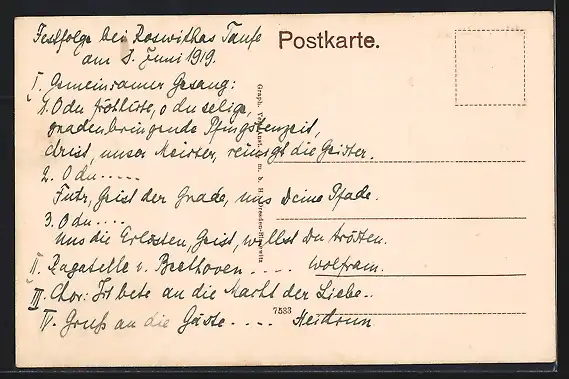 Festfolge bei Roswithas Taufe
am 8. Juni 1919.
Postkarte.
I. Gemeinsamer Gesang:
1. O du fröhliche, o du selige,
gnadenbringende Pfingstenzeit,
Christ, unser Meister, reinigt die Geister.
2. O du .....
Führ, Geist der Gnade, uns Deine Pfade.
3. O du ....
Uns die Erlösten, Geist, willst Du trösten.
II. Bagatelle v. Beethoven .... Wolfram.
III. Chor: Ich bete an die Macht der Liebe..
IV. Gruß an die Gäste .... Heidrun
Graph. m. b. H. Dresden-
7533